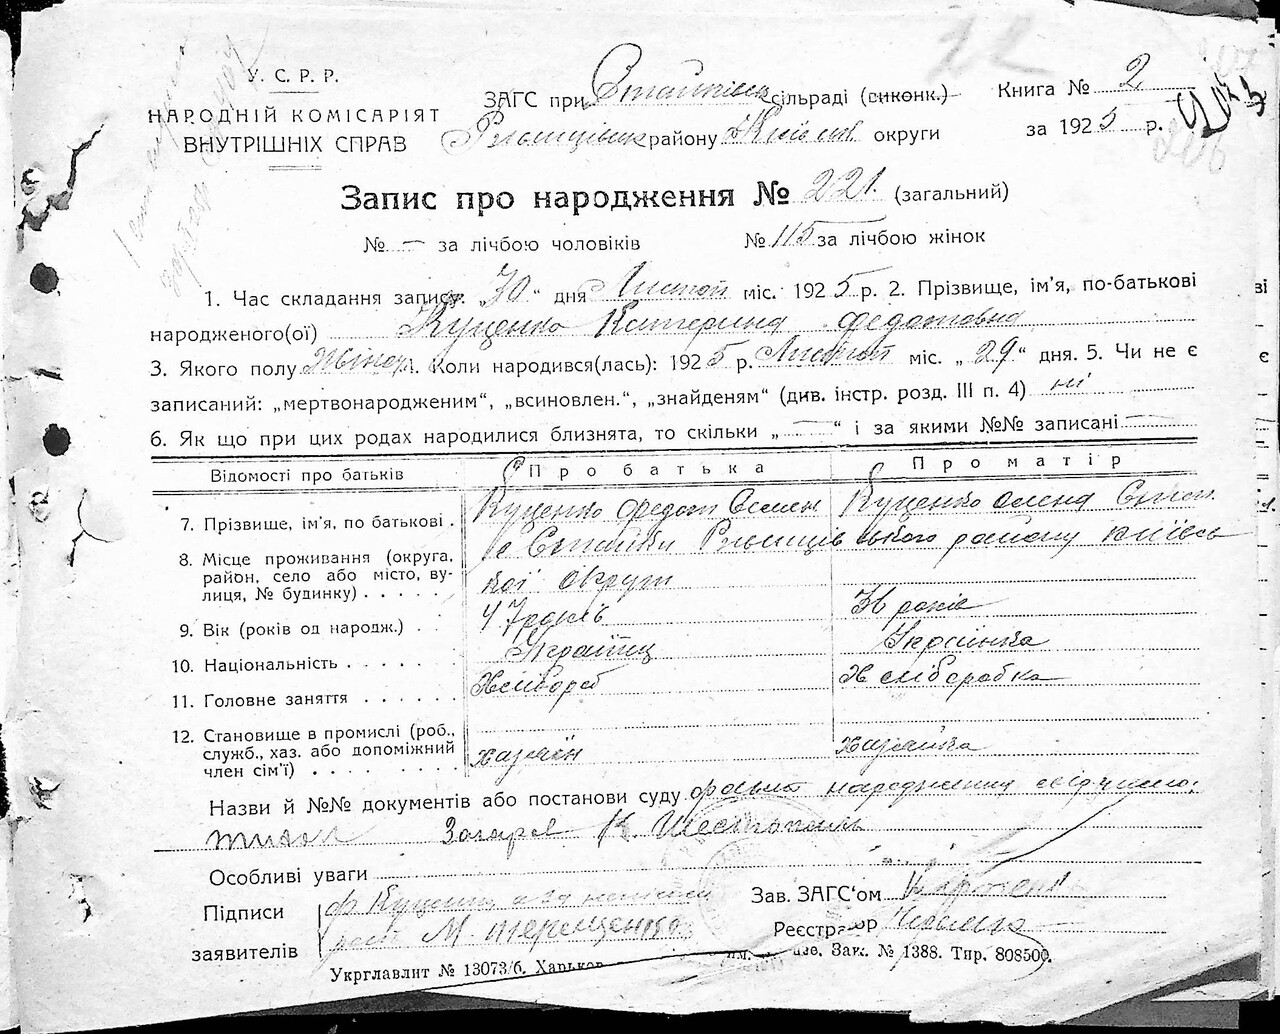 22
У. С. Р. Р.
НАРОДНІЙ КОМІСАРІЯТ
ВНУТРІШНІХ СПРАВ
ЗАГС при Стайківськ сільраді (виконк.)
Книга № 2
Ржищівськ району Київськ округи
за 1925 р.
206
Запис про народження № 221. (загальний)
№ — за лічбою чоловіків
№ 115 за лічбою жінок
1. Час складання запису: „30“ дня Листоп міс. 1925 р. 2. Прізвище, ім'я, по-батькові
народженого(ої) Куценко Катерина Федотовна
3. Якого полу Жіноч. Коли народився(лась): 1925 р. Листоп міс. „29“ дня. 5. Чи не є
записаний: „мертвонародженим“, „всиновлен.“, „знайденям“ (див. інстр. розд. III п. 4) ні
6. Як що при цих родах народилися близнята, то скільки „ — “ і за якими №№ записані —
Відомості про батьків
Про батька
Про матір
7. Прізвище, ім'я, по батькові .
Куценко Федот Семен
Куценко Олена Степ
8. Місце проживання (округа, район, село або місто, вулиця, № будинку) . . . . .
с Стайки Ржищівського району київсь
кої округи
9. Вік (років од народж.) . .
47 років
36 років
10. Національність . . . . .
Українц
Українка
11. Головне заняття . . . . .
Хлібороб
Хліборобка
12. Становище в промислі (роб., служб., хаз. або допоміжний член сім'ї) . . . . . . .
хазяїн
хазяйка
Назви й №№ документів або постанови суду факт народження свідчимо:
Захаров К. Шестопаль
Особливі уваги
Підписи
заявителів
ф Куценко а за неписьм
М. Терещенко
Зав. ЗАГС'ом
Реєстратор
Укрглавлит № 13073/б. Харьков
Зак. № 1388. Тир. 808500.